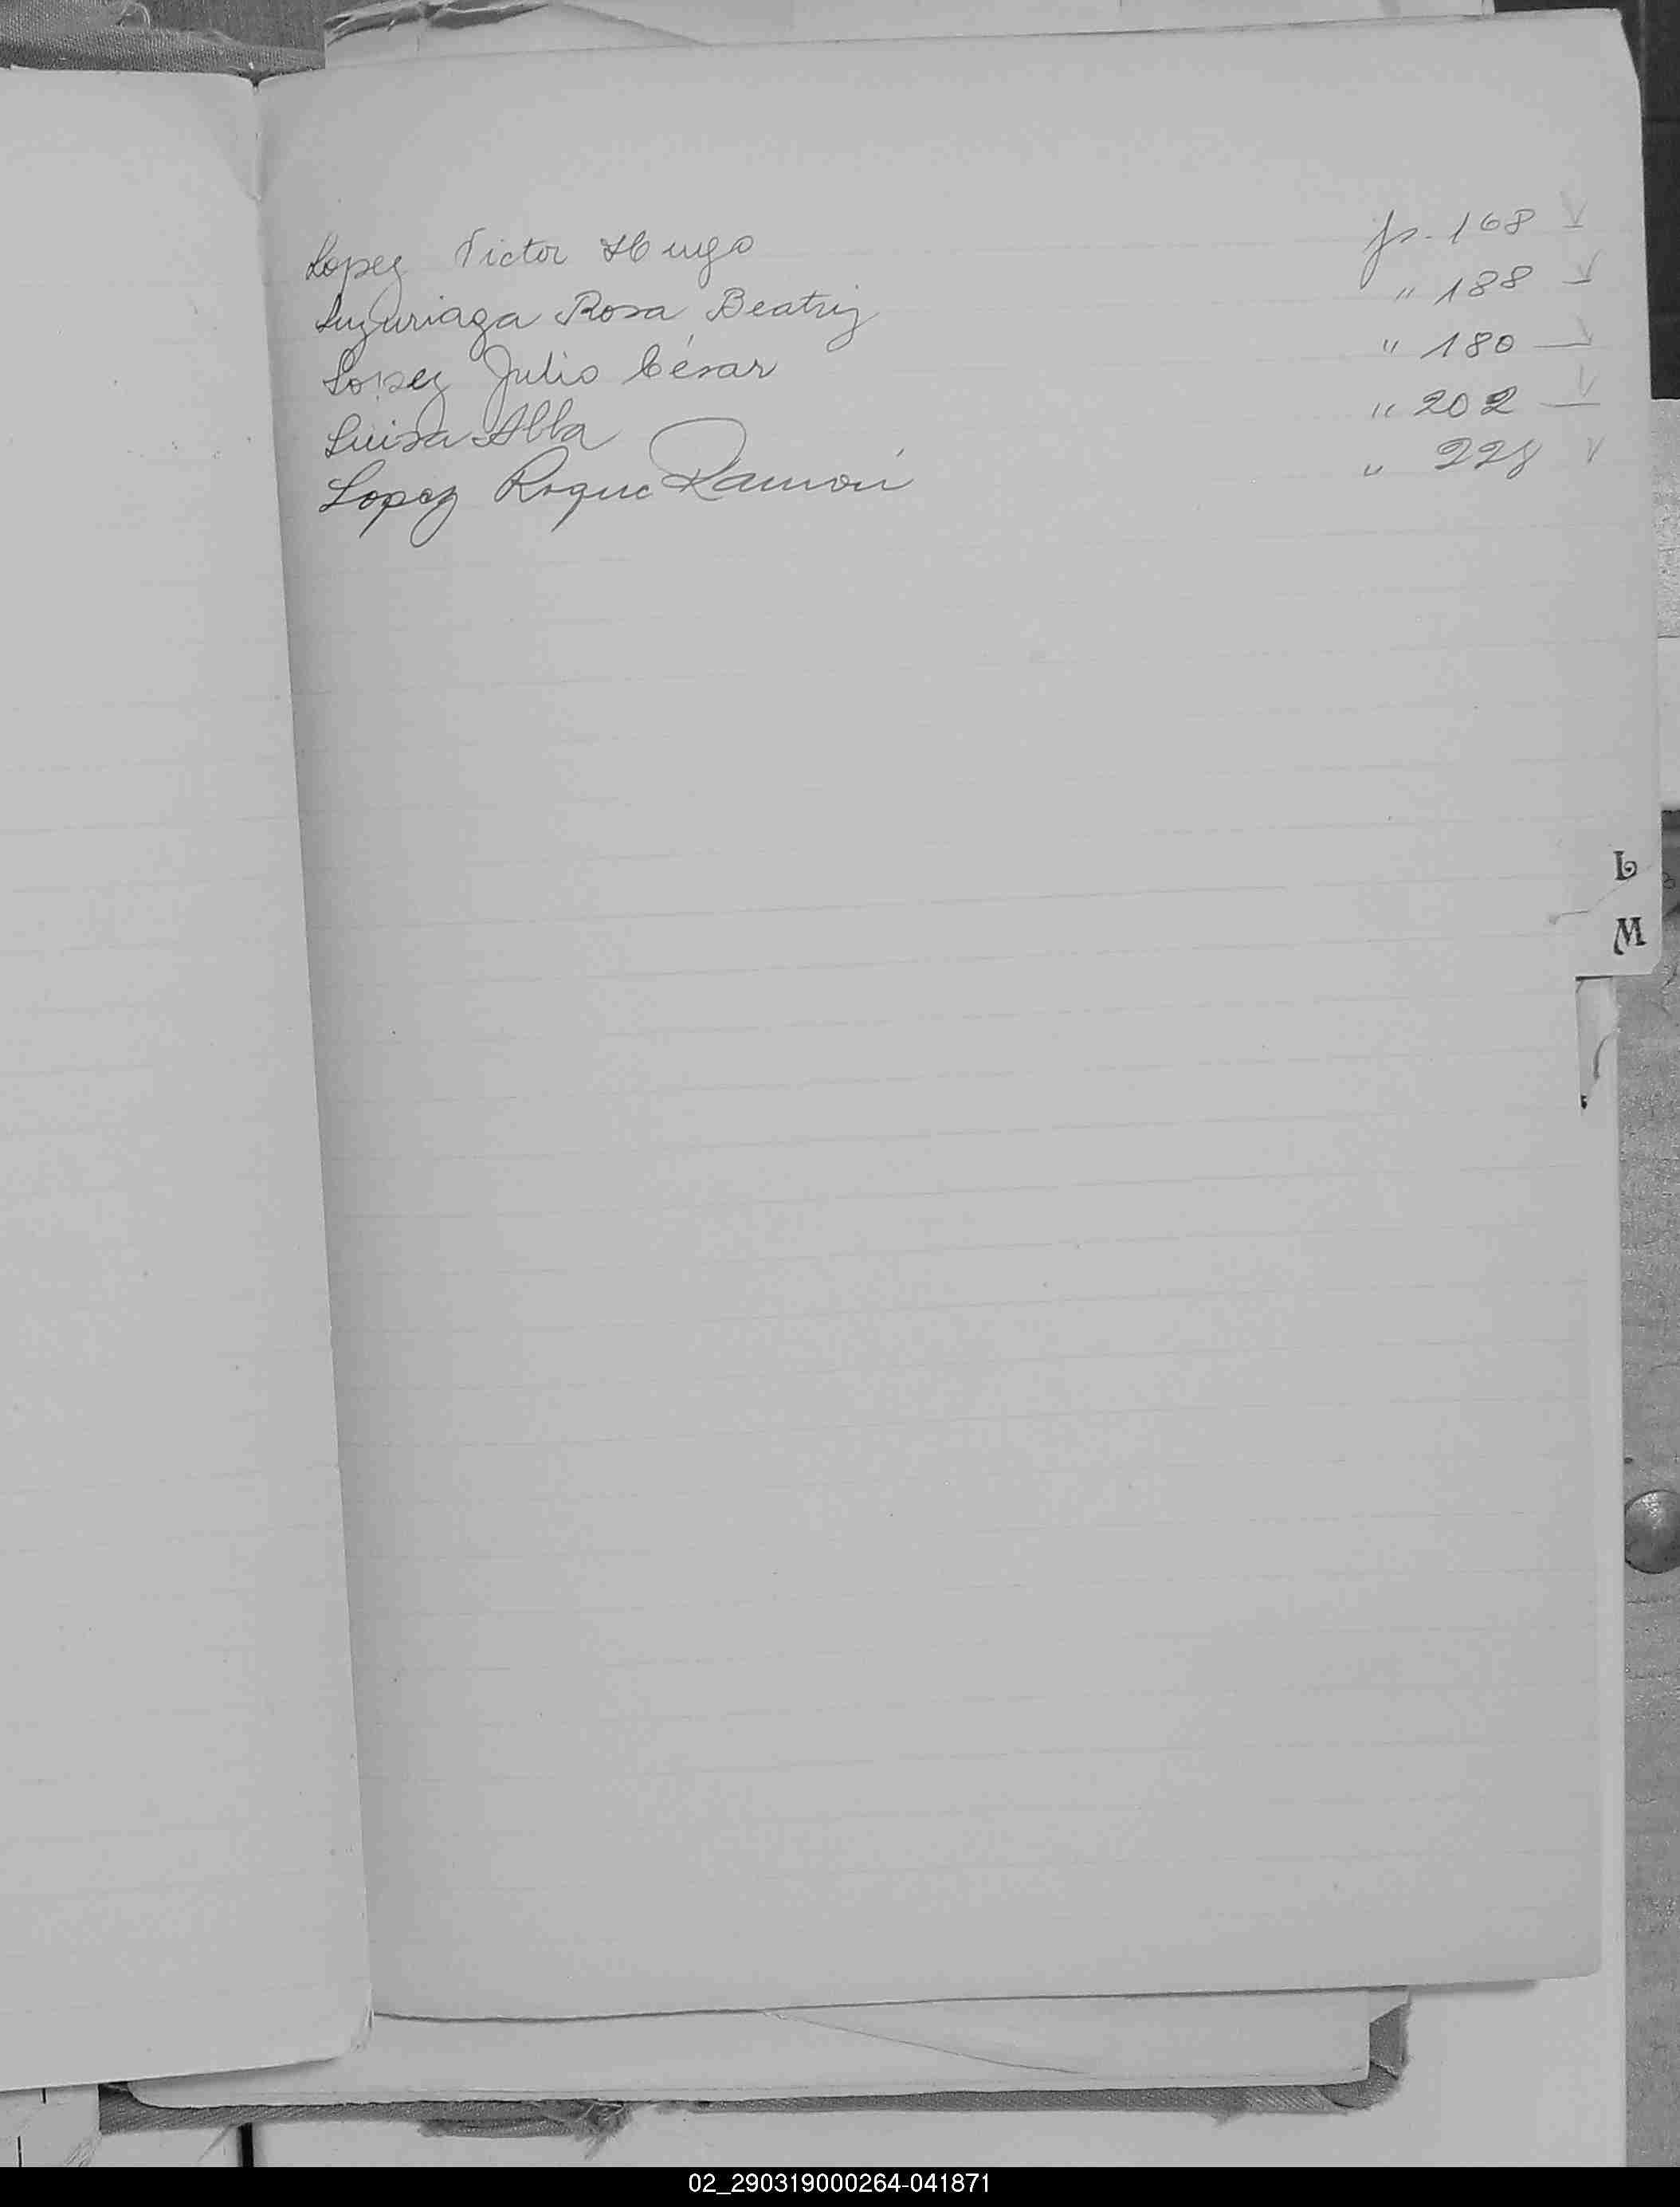 Lopez Victor Hugo fs. 168
Luzuriaga Rosa Beatriz " 188
Lopez Julio César " 180
Luisa Alba " 202
Lopez Roque Ramón " 228
L
M
02_290319000264-041871